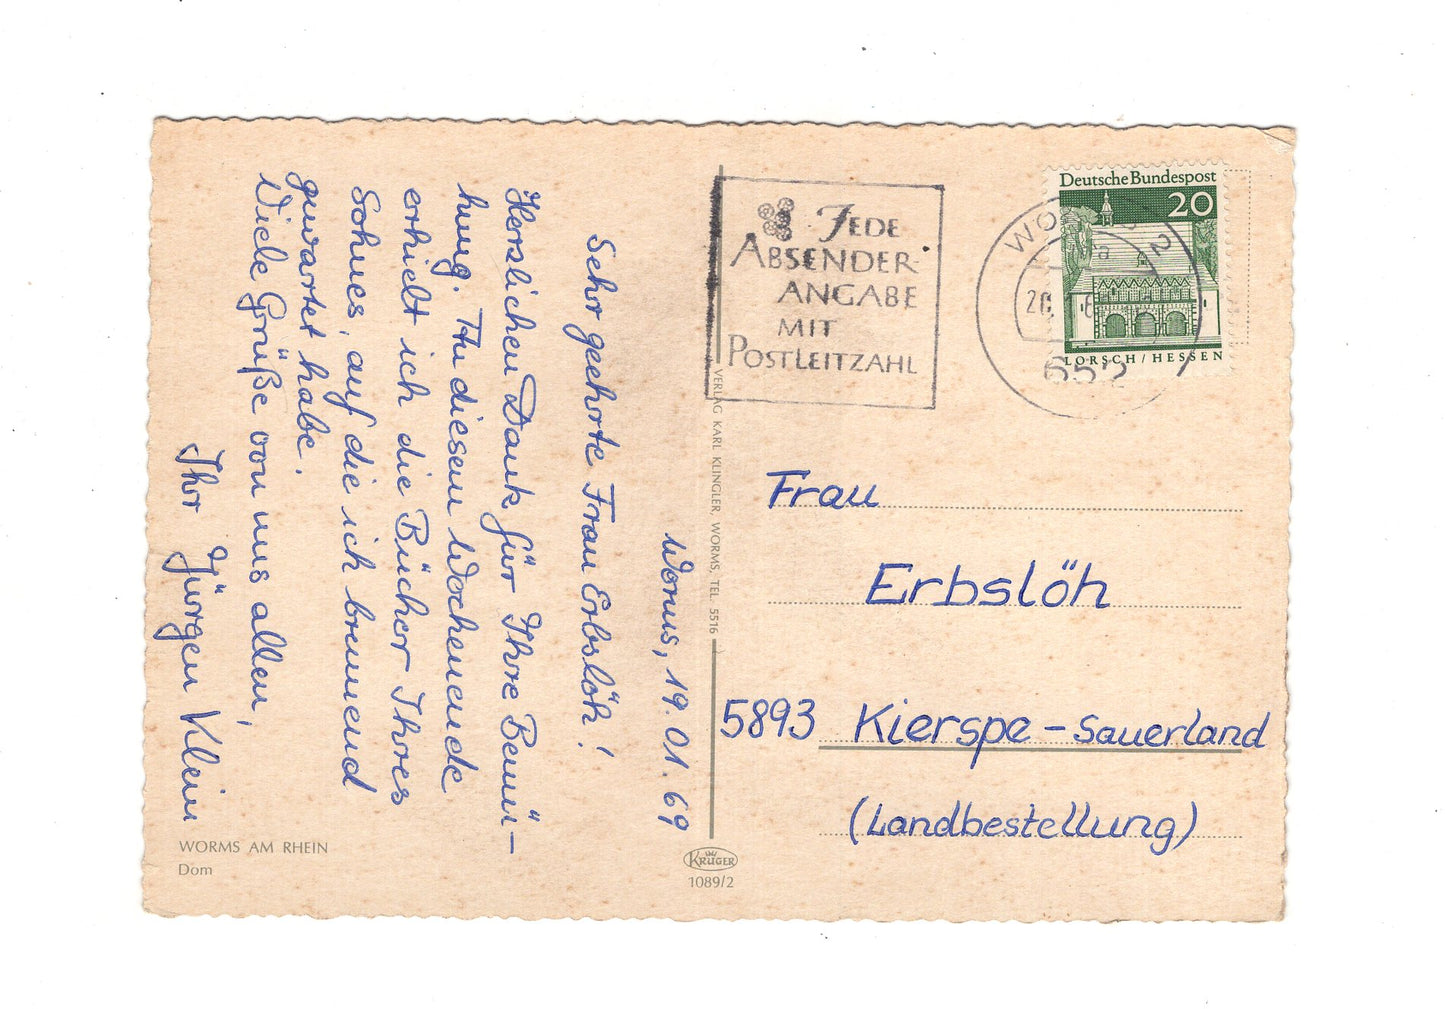 Worms, 19.01.69
Sehr geehrte Frau Erbslöh!
Herzlichen Dank für Ihre Bemü-
hung. An diesem Wochenende
erhielt ich die Bücher Ihres
Sohnes, auf die ich brennend
gewartet habe.
Viele Grüße von uns allen,
Ihr Jürgen Klein
WORMS AM RHEIN
Dom
VERLAG KARL KLINGLER, WORMS, TEL. 5516
KRÜGER
1089/2
JEDE
ABSENDER-
ANGABE
MIT
POSTLEITZAHL
Deutsche Bundespost
20
LORSCH/HESSEN
652
Frau
Erbslöh
5893 Kierspe - Sauerland
(Landbestellung)